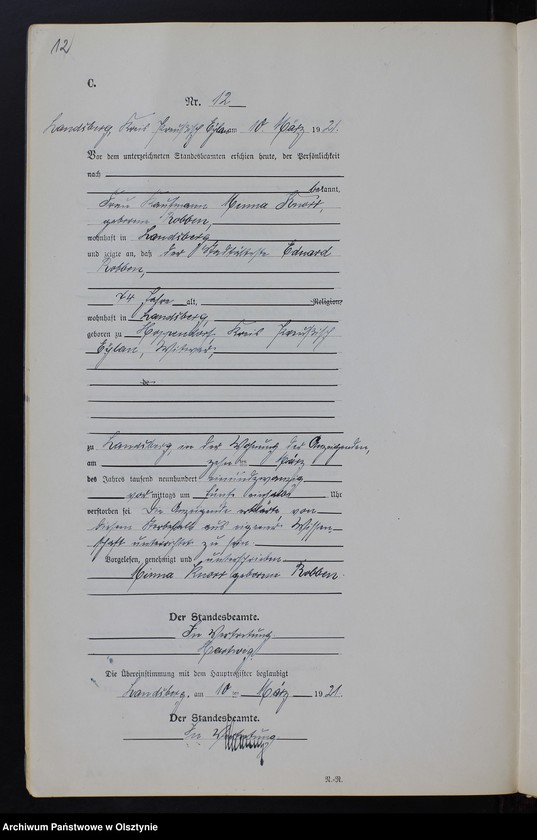 12
C.
Nr. 12
Landsberg, Kreis Preußisch Eylau am 10. März 1921.
Vor dem unterzeichneten Standesbeamten erschien heute, der Persönlichkeit
nach
bekannt,
Frau Kaufmann Minna Knorr,
geborene Robben,
wohnhaft in Landsberg,
und zeigte an, daß der Stadtälteste Eduard
Robben,
74 Jahre alt, Religion,
wohnhaft in Landsberg,
geboren zu Hoppendorf Kreis Preußisch
Eylau, Witwer,
de
zu Landsberg in der Wohnung der Anzeigenden,
am zehn ten März
des Jahres tausend neunhundert einundzwanzig
vor mittags um fünf Uhr
verstorben sei. Die Anzeigende erklärte von
diesem Sterbefall aus eigener Wissen-
schaft unterrichtet zu sein.
Vorgelesen, genehmigt und unterschrieben
Minna Knorr geborene Robben.
Der Standesbeamte.
In Vertretung
Hartwig
Die Übereinstimmung mit dem Hauptregister beglaubigt
Landsberg, am 10 ten März 1921.
Der Standesbeamte.
In Vertretung.
N.-R.
Archiwum Państwowe w Olsztynie